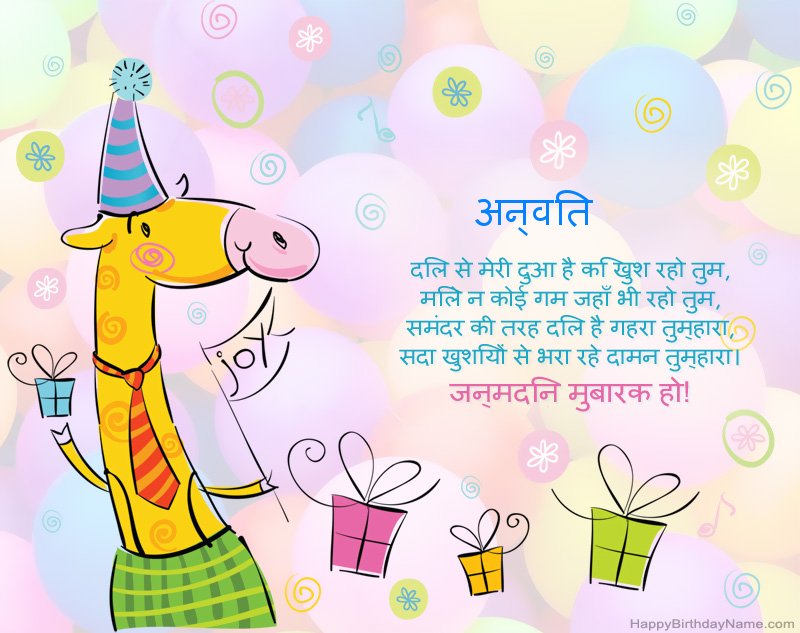 अन्वति
दलि से मेरी दुआ है कि खुश रहो तुम,
मलिे न कोई गम जहाँ भी रहो तुम,
समंदर की तरह दलि है गहरा तुम्हारा,
सदा खुशयिों से भरा रहे दामन तुम्हारा।
जन्मदनि मुबारक हो!
joy
HappyBirthdayName.com